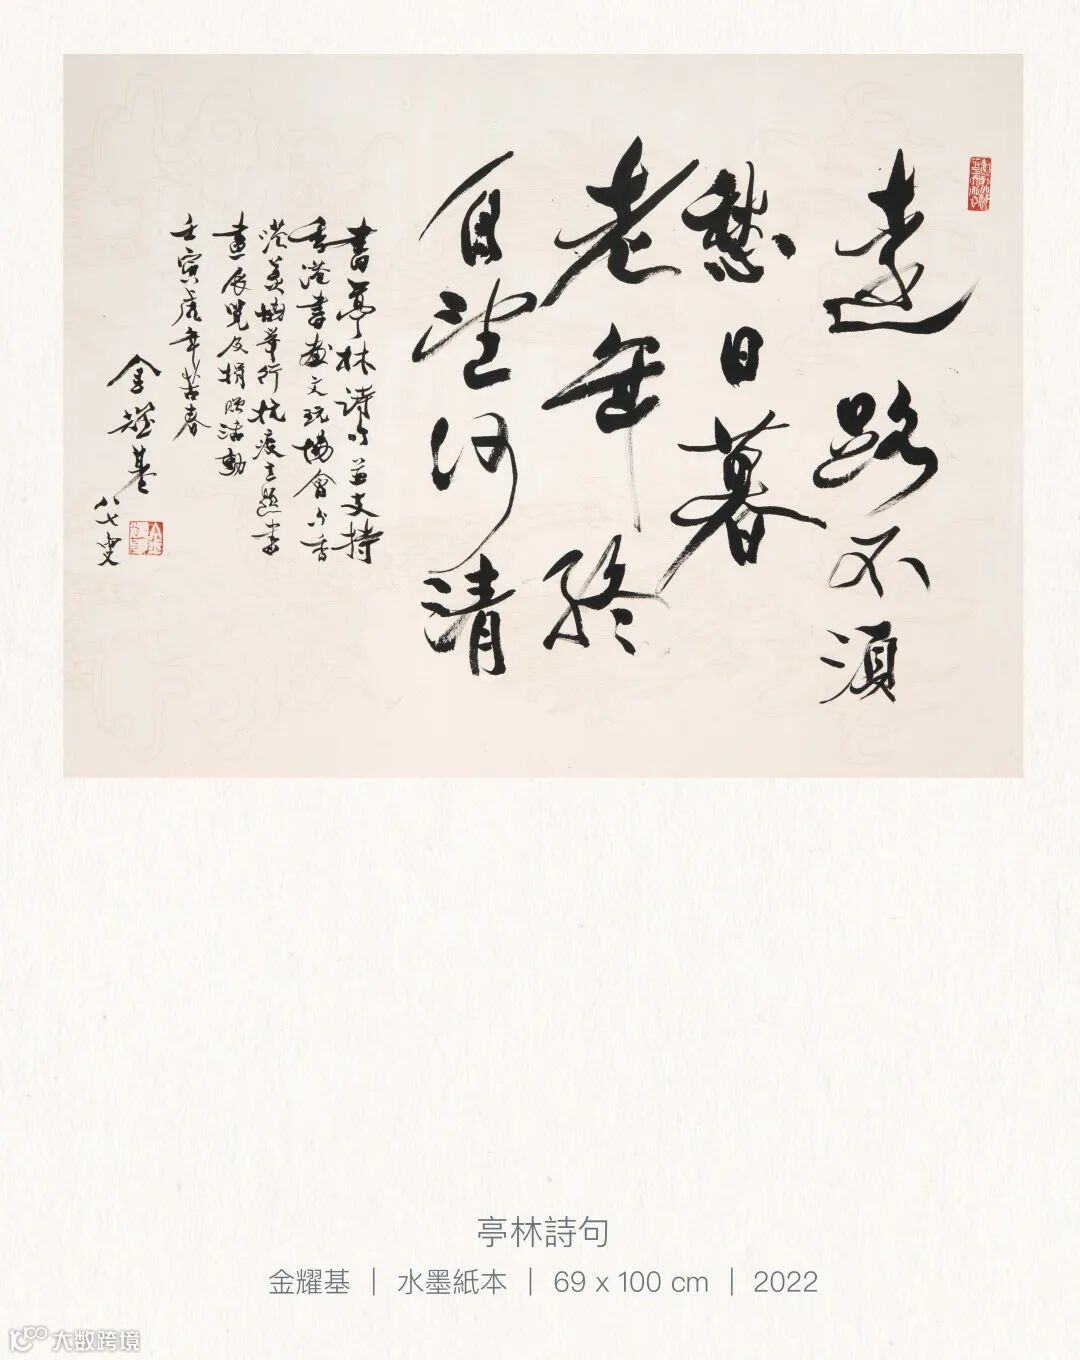 遠路不須
愁日暮
老年終
自望河清
書亭林詩句並支持
香港書畫文玩協會与香
港美協舉行抗疫主題書
畫展覽及捐贈活動
壬寅虎年春
金耀基
八七叟
亭林詩句
金耀基 | 水墨紙本 | 69 x 100 cm | 2022
大数跨境